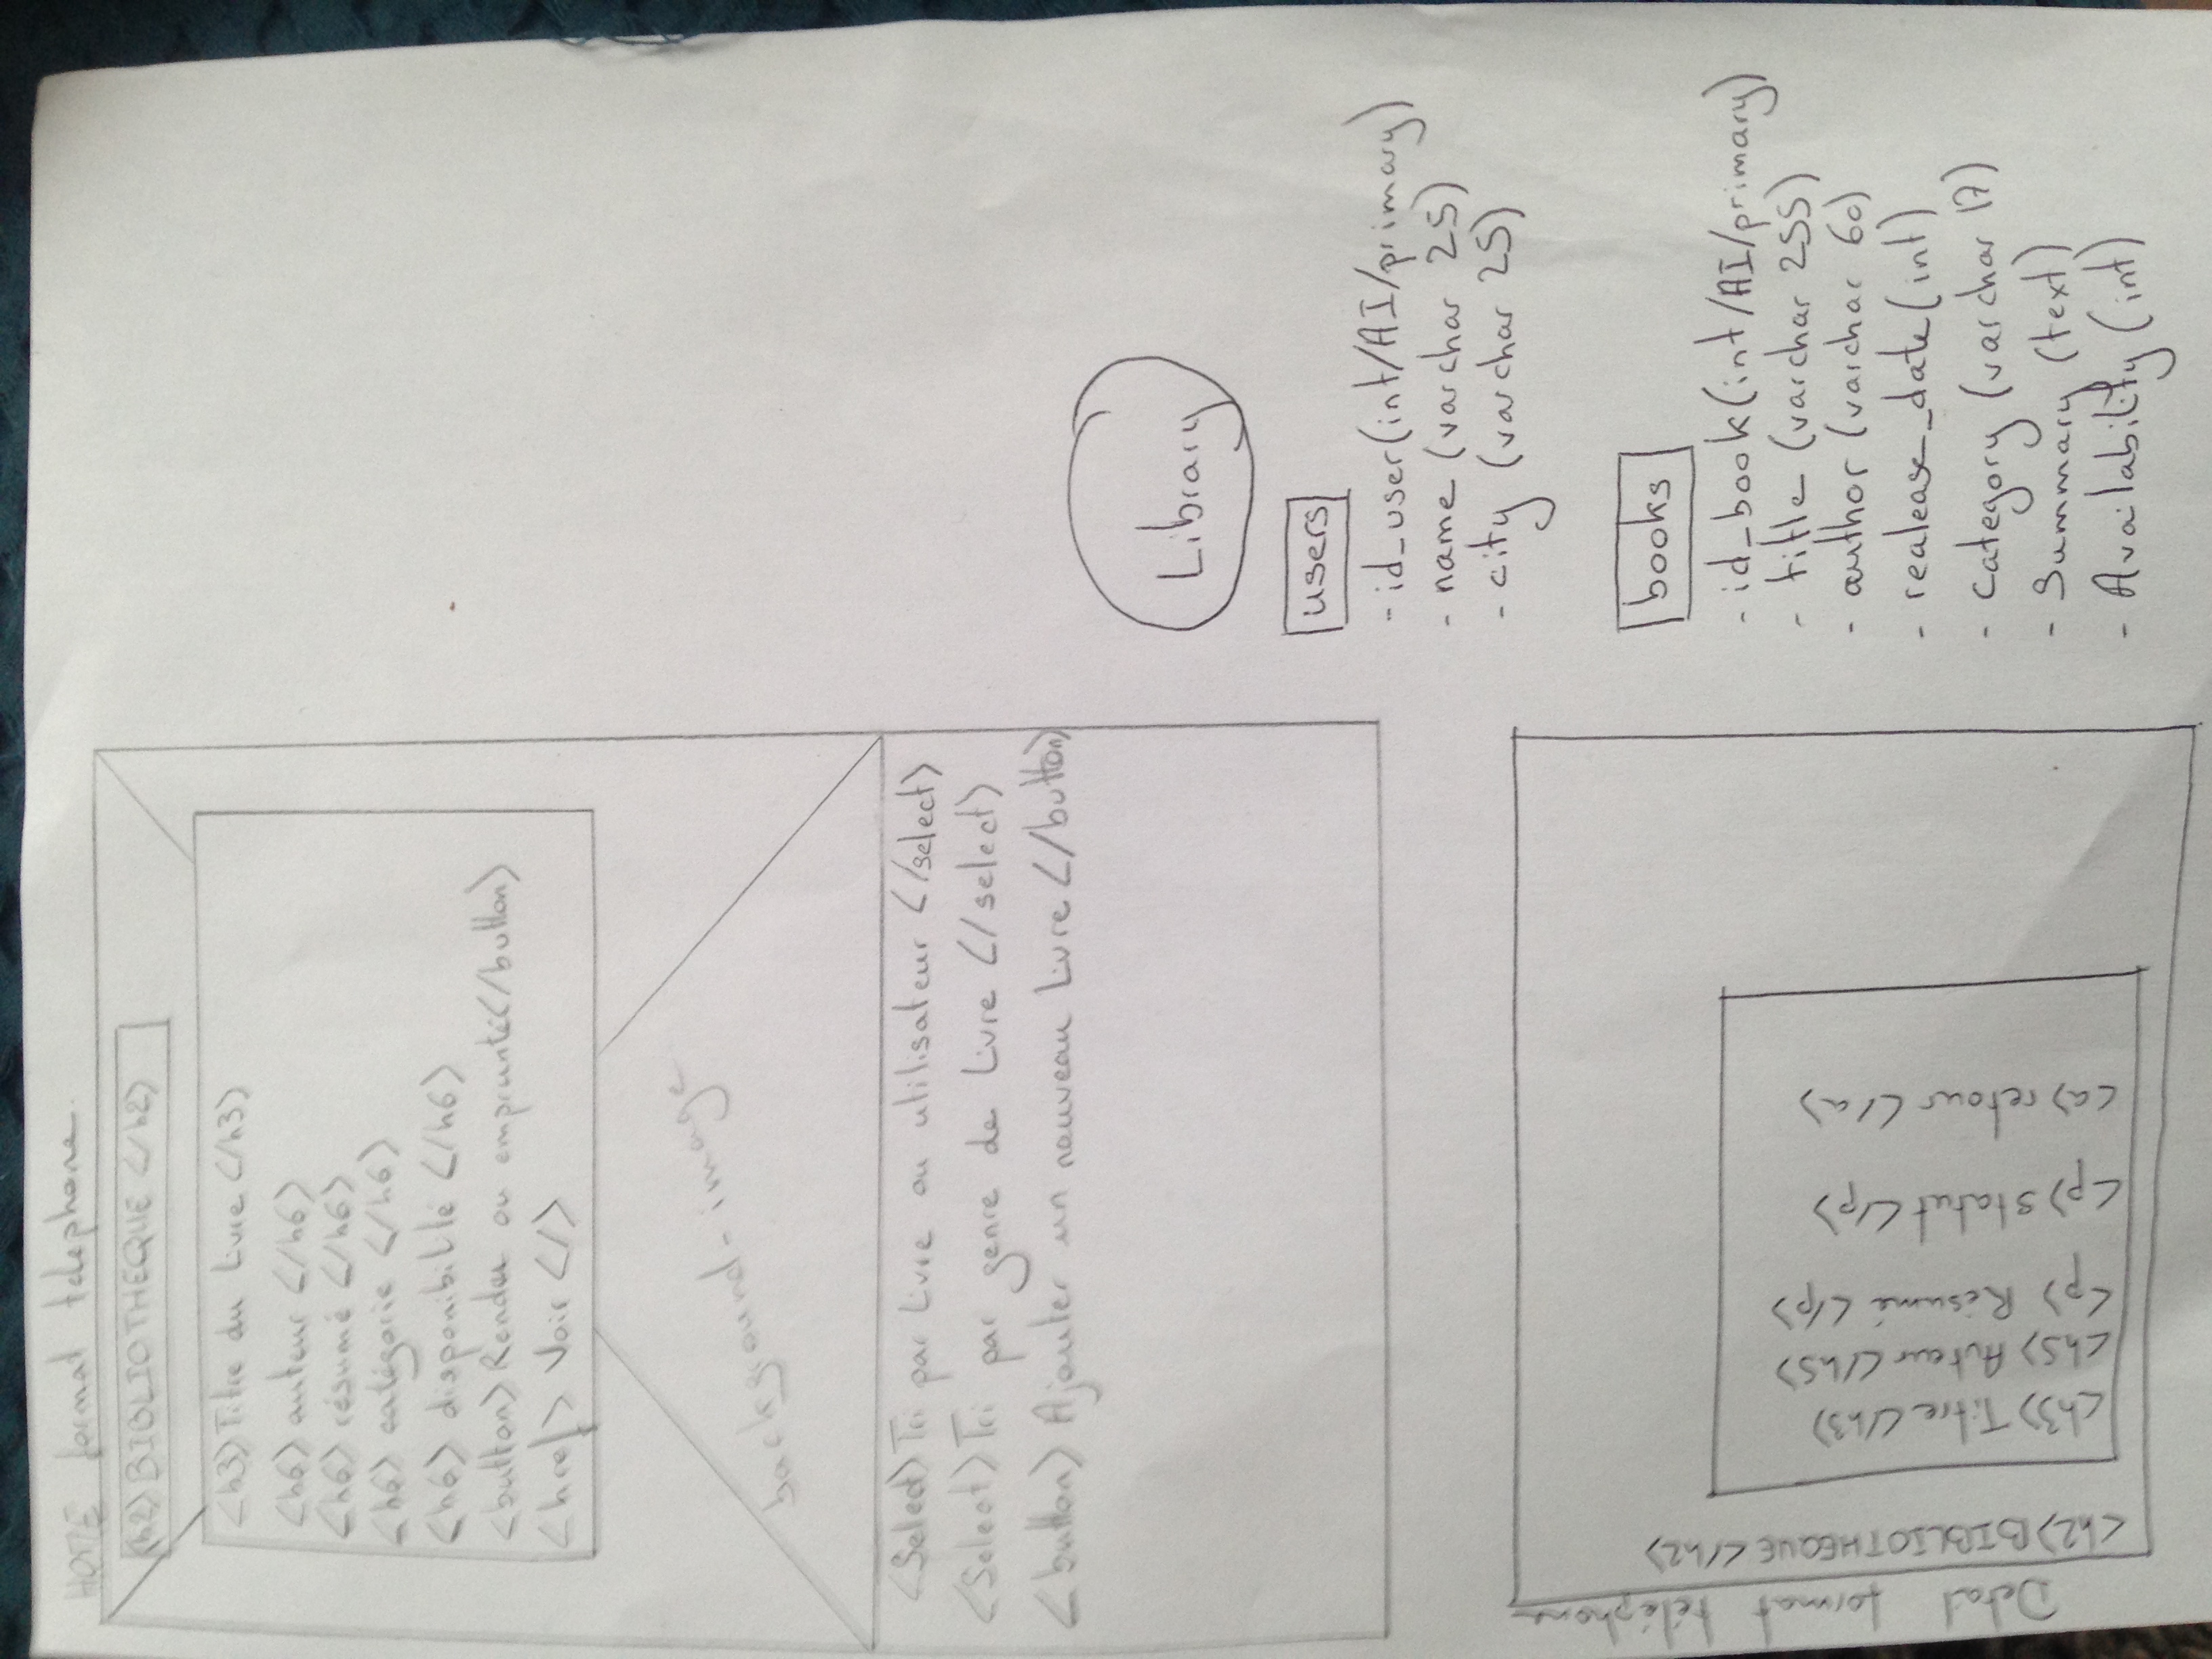 HOME format telephone
<h2> BIBLIOTHEQUE </h2>
<h3> Titre du Livre </h3>
<h6> auteur </h6>
<h6> résumé </h6>
<h6> catégorie </h6>
<h6> disponibilité </h6>
<button> Rendu ou emprunté </button>
<href> Voir </>
background-image
<Select> Tri par Livre ou utilisateur </select>
<Select> Tri par genre de Livre </select>
<button> Ajouter un nouveau Livre </button>
Detail format téléphone
<h2> BIBLIOTHEQUE </h2>
<h3> Titre </h3>
<h5> Auteur </h5>
<p> Résumé </p>
<p> statut </p>
<a> retour </a>
Library
users
- id_user (int/AI/primary)
- name (varchar 25)
- city (varchar 25)
books
- id_book (int/AI/primary)
- title (varchar 255)
- author (varchar 60)
- realease_date (int)
- category (varchar 17)
- Summary (text)
- Availability (int)